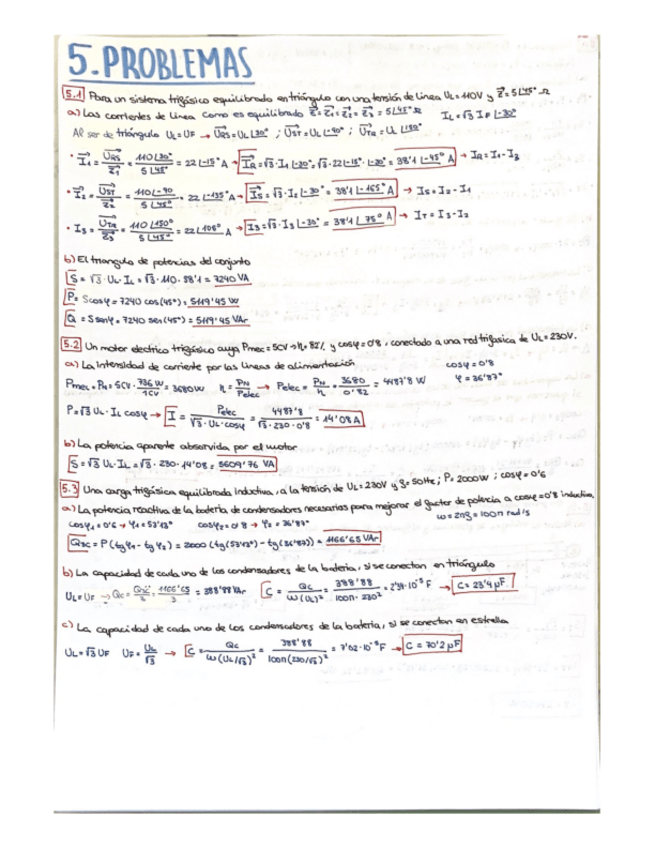 5.PROBLEMAS
5.1 Para un sistema trifásico equilibrado en triángulo con una tensión de línea UL=110V y Z=5∠45° Ω
a) Las corrientes de línea como es equilibrado Z=Z1=Z2=Z3=5∠45° Ω IL=√3 IF ∠-30°
Al ser de triángulo UL=UF → URS=UL∠30° ; UST=UL∠-90° ; UTR=UL∠150°
• I1 = URS/Z1 = 110∠30°/5∠45° = 22∠-15° A → IR=√3·I1∠-30°=√3·22∠-15°·∠-30°=38'1∠-45° A → IR=I1-I3
• I2 = UST/Z2 = 110∠-90/5∠45° = 22∠-135° A → IS=√3·I2∠-30°=38'1∠-165° A → IS=I2-I1
• I3 = UTR/Z3 = 110∠150°/5∠45° = 22∠105° A → I3=√3·I3∠-30°=38'1∠75° A → IT=I3-I2
b) El triangulo de potencias del conjunto
S=√3·UL·IL=√3·110·38'1=7240 VA
P=Scosφ=7240 cos(45°)=5119'45 W
Q=Ssenφ=7240 sen(45°)=5119'45 VAr
5.2 Un motor electrico trifásico cuya Pmec=5CV→η=82%, y cosφ=0'8, conectado a una red trifasica de UL=230V.
a) La intensidad de corriente por las líneas de alimentación cosφ=0'8
Pmec=PN=5CV·736W/1CV=3680W η=PN/Pelec → Pelec=PN/η=3680/0'82=4487'8 W φ=36'87°
P=√3 UL·IL cosφ → I=Pelec/√3·UL·cosφ=4487'8/√3·230·0'8=14'08A
b) La potencia aparente absorvida por el motor
S=√3 UL·IL=√3·230·14'08=5609'76 VA
5.3 Una carga trifásica equilibrada inductiva, a la tensión de UL=230V y f=50Hz; P=2000W; cosφ=0'6
a) La potencia reactiva de la batería de condensadores necesarias para mejorar el factor de potencia a cosφ=0'8 inductiva,
cosφ1=0'6→φ1=53'13° cosφ2=0'8→φ2=36'87° ω=2πf=100π rad/s
Qsc=P(tgφ1-tgφ2)=2000(tg(53'13°)-tg(36'87°))=1166'65 VAr
b) La capacidad de cada uno de los condensadores de la bateria, si se conectan en triángulo
UL=UF → QC=1166'65/3=388'88VAr C=QC/ω(UL)²=388'88/100π·230²=2'34·10⁻⁵F → C=23'4μF
c) La capacidad de cada uno de los condensadores de la batería, si se conectan en estrella
UL=√3UF UF=UL/√3 → C=QC/ω(UL/√3)²=388'88/100π(230/√3)²=7'02·10⁻⁵F → C=70'2μF